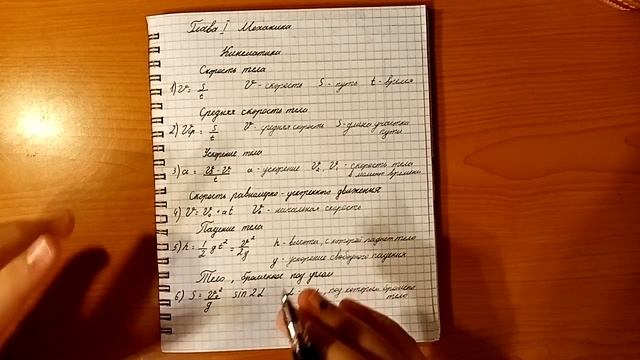 Глава I Механика
Кинематика
Скорость тела
1) V = S/t V - скорость S - путь t - время
Средняя скорость тела
2) Vср = S/t V - средняя скорость S - длина участка пути
Ускорение тела
3) a = a - ускорение - скорость тела в момент времени
Скорость равномерно - ускоренного движения
4) V = V₀ + at V₀ - начальная скорость
Падение тела
5) h = 1/2 gt² = V²/2g h - высота, с которой падает тело
g - ускорение свободного падения
Тело, брошенное под углом
6) S = V₀²/g sin 2α под которым брошено тело